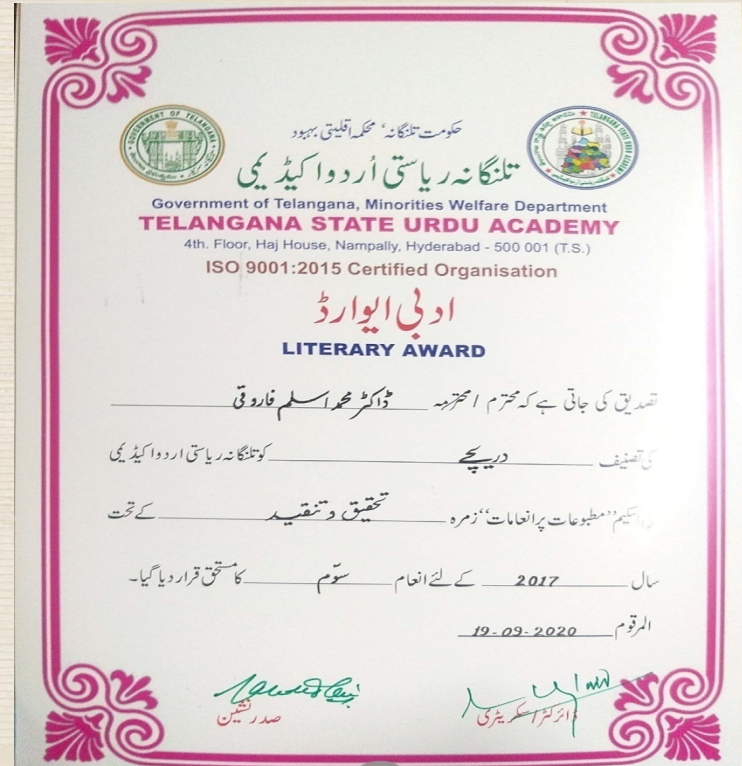 حکومت تلنگانہ، محکمہ اقلیتی بہبود
GOVERNMENT OF TELANGANA
TELANGANA STATE URDU ACADEMY
تلنگانہ ریاستی اُردو اکیڈیمی
Government of Telangana, Minorities Welfare Department
TELANGANA STATE URDU ACADEMY
4th. Floor, Haj House, Nampally, Hyderabad - 500 001 (T.S.)
ISO 9001:2015 Certified Organisation
ادبی ایوارڈ
LITERARY AWARD
تصدیق کی جاتی ہے کہ محترم / محترمہ ڈاکٹر محمد اسلم فاروقی
کی تصنیف دریچے کو تلنگانہ ریاستی اردو اکیڈیمی
اسکیم "مطبوعات پر انعامات" زمرہ تحقیق و تنقید کے تحت
سال 2017 کے لئے انعام سوّم کا مستحق قرار دیا گیا۔
المرقوم 19-09-2020
صدر نشین
ڈائرکٹر / سکریٹری